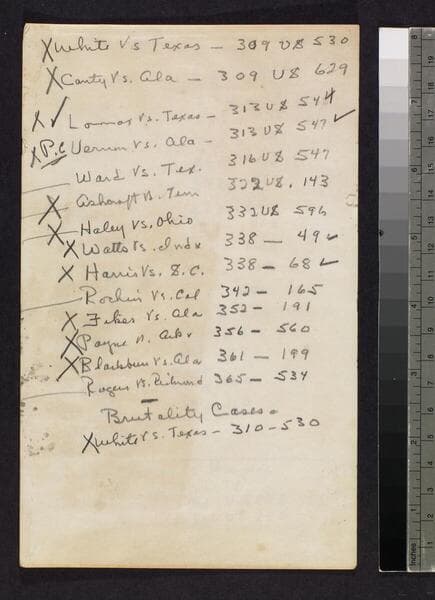 X White Vs Texas - 309 US 530
X Canty Vs. Ala - 309 US 629
X ✓ Lomax Vs. Texas - 313 US 544
X P.C Vernon Vs. Ala - 313 US 547 ✓
Ward Vs. Tex. 316 US 547
X Ashcraft Vs. Tenn 322 US. 143
X Haley Vs. Ohio 332 US 596
X Watts Vs. Indx 338 - 49 ✓
X Harris Vs. S.C. 338 - 68 ✓
Rochin Vs. Cal 342 - 165
X Fikes Vs. Ala 352 - 191
X Payne Vs. Ark. 356 - 560
X Blackburn Vs. Ala 361 - 199
Rogers Vs. Richmond 365 - 534
Brutality Cases.
X White Vs. Texas - 310-530
Inches
1
2
3
4
5
6
7
8